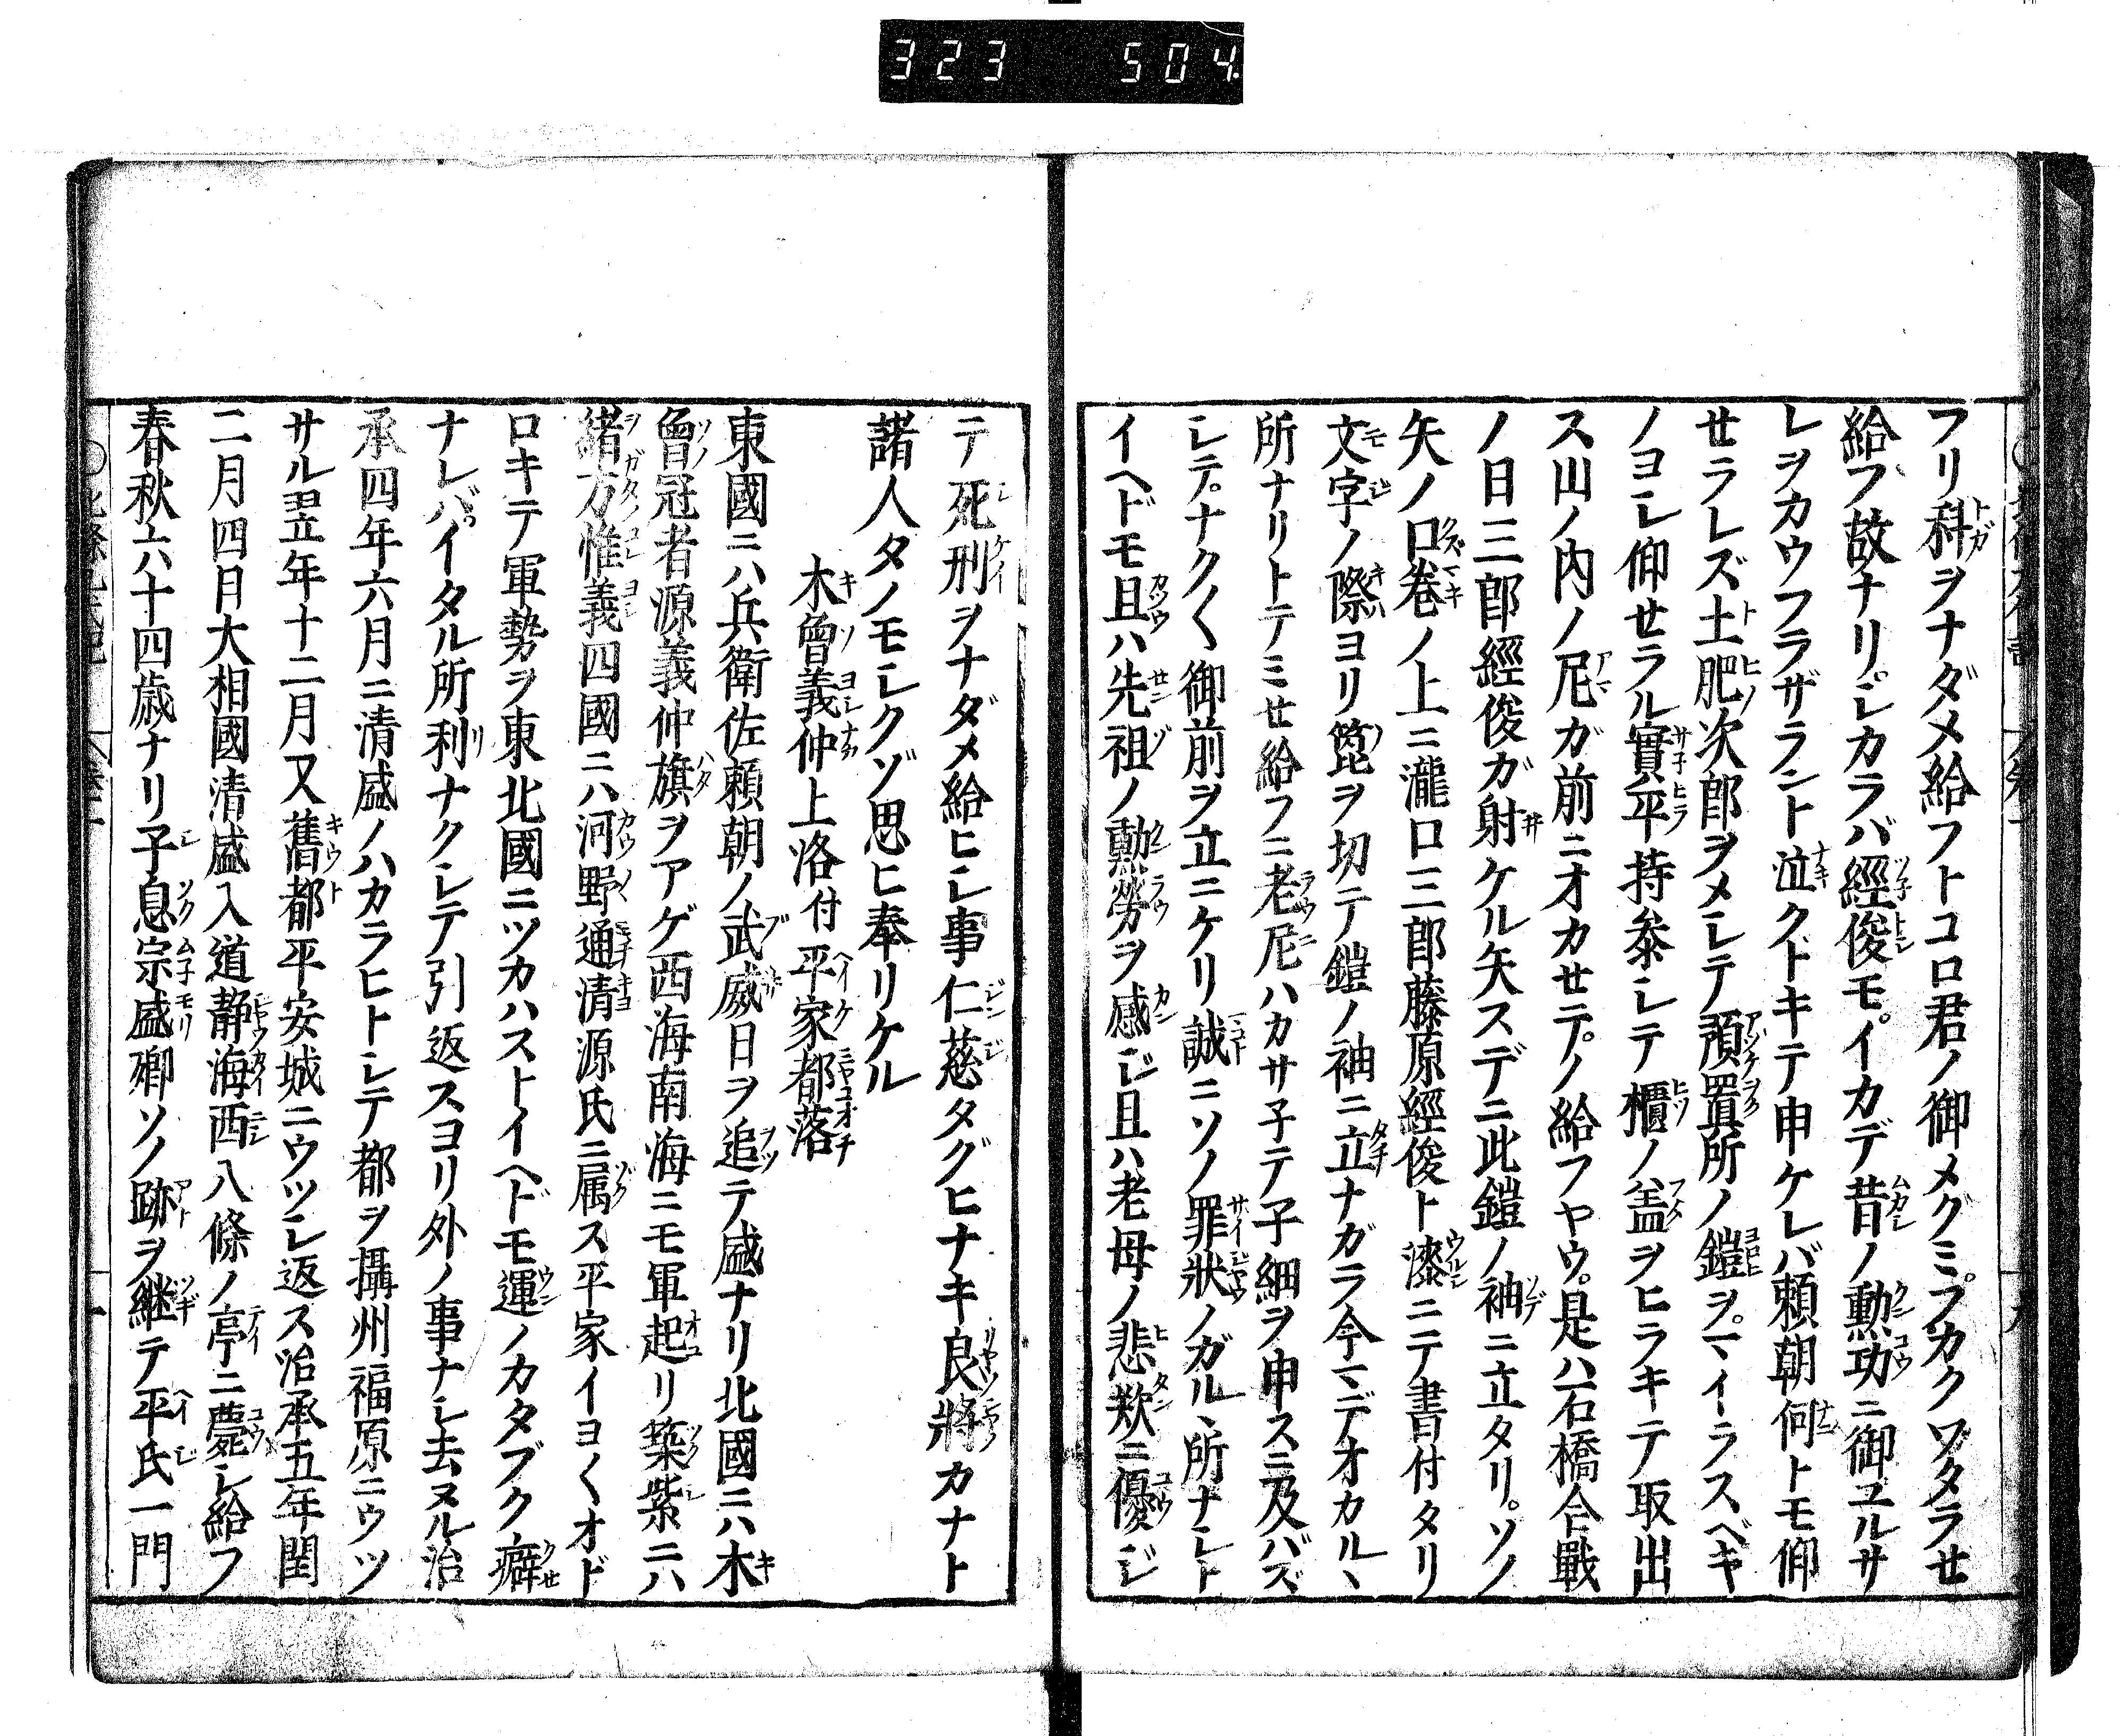 323 504
フリ科ヲナダメ給フトコロ君ノ御メグミ。フカクワタラせ
給フ故ナリ。シカラバ經俊モ。イカデ昔ノ勳功ニ御ユルサ
レヲカウフラザラント泣クトキテ申ケレバ頼朝何トモ仰
せラレズ土肥次郎ヲメシテ預置所ノ鎧ヲ。マイラスベキ
ノヨシ仰せラル實平持参シテ櫃ノ盖ヲヒラキテ取出
ス山ノ内ノ尼ガ前ニオカせテ。ノ給フヤウ。是ハ石橋合戰
ノ日三郎經俊ガ射ケル矢スデニ此鎧ノ袖ニ立タリ。ソノ
矢ノ口巻ノ上ニ瀧口三郎藤原經俊ト漆ニテ書付タリ
文字ノ際ヨリ箆ヲ切テ鎧ノ袖ニ立ナガラ今マデオカルヽ
所ナリトテミせ給フニ老尼ハカサ子テ子細ヲ申スニ及バズ
シテ。ナク〱御前ヲ立ニケリ誠ニソノ罪狀ノガルヽ所ナシト
イヘドモ且ハ先祖ノ勳勞ヲ感ジ且ハ老母ノ悲歎ニ優ジ
テ死刑ヲナダメ給ヒシ事仁慈タグヒナキ良將カナト
諸人タノモシクゾ思ヒ奉リケル
木曾義仲上洛付平家都落
東國ニハ兵衛佐頼朝ノ武威日ヲ追テ盛ナリ北國ニハ木
曾冠者源義仲旗ヲアゲ西海南海ニモ軍起リ築紫ニハ
緒方惟義四國ニハ河野通清源氏ニ属ス平家イヨ〱オド
ロキテ軍勢ヲ東北國ニツカハストイヘドモ運ノカタブク癖
ナレバ。イタル所利ナクシテ引返スヨリ外ノ事ナシ去ヌル治
承四年六月ニ清盛ノハカラヒトシテ都ヲ攝州福原ニウツ
サル翌年十二月又舊都平安城ニウツシ返ス治承五年閏
二月四日大相國清盛入道静海西八條ノ亭ニ薨シ給フ
春秋六十四歳ナリ子息宗盛卿ソノ跡ヲ継テ平氏一門